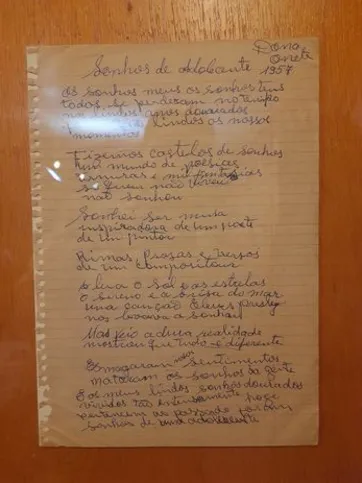 Dona
Onete
1957
Sonhos de Adolecente
Os sonhos meus os sonhos teus
todos, se perderam no tempo
nos lindos anos dourados
lindos os nossos
momentos
Fizemos castelos de sonhos
num mundo de poesias
e mil fantasias
se quem não viveu
não sonhou
Sonhei ser musa
inspiradora de um poeta
de um pintor
Rimas, Prosas e versos
de um compositor
a lua o sol e as estrelas
o sereno e a brisa do mar
uma canção
nos levava a sonhar
Mas veio a dura realidade
mostrou que tudo é diferente
Esmagaram sentimentos
mataram os sonhos da gente
E os meus lindos sonhos dourados
vividos tão intensamente hoje
pertencem ao passado
sonhos de uma adolecente